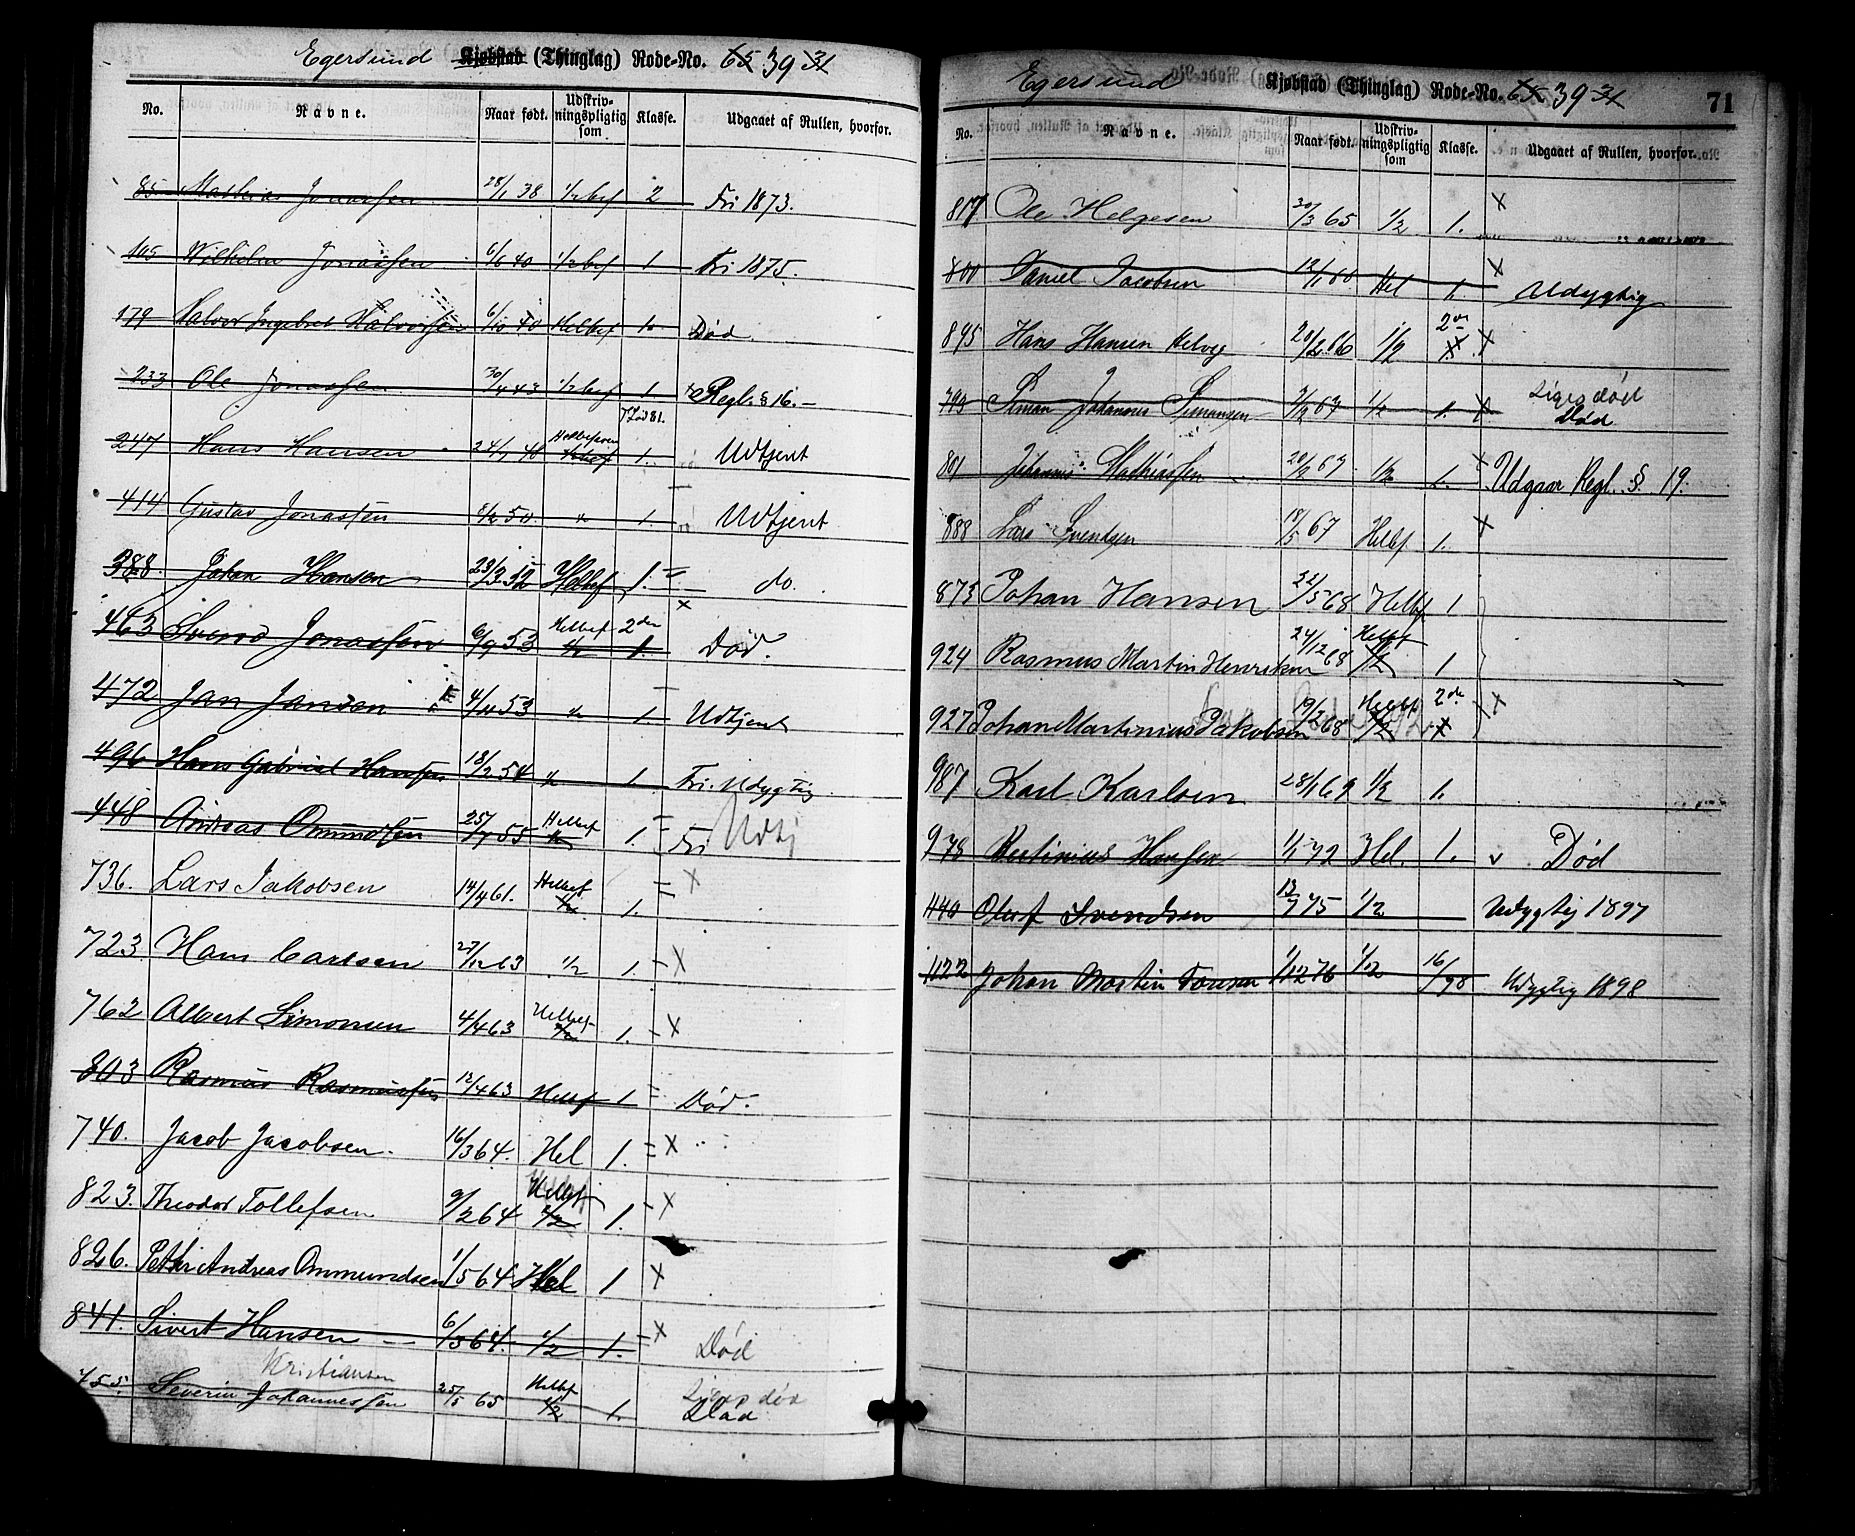 Egersund Kjøbstad (Thinglag) Rode-No. 65 39 31
No. Navne. Naar født. Udskrivningspligtig som Klasse. Udgaaet af Rullen, hvorfor.
85 Mathias Jonassen 28/1 38 1/2 bef 2 Fri 1873.
105 Wilhelm Jonassen 6/6 40 1/2 bef 1 Fri 1875.
179 Halvor Ingebret Halvorsen 6/10 40 Helbef 1. Død.
233 Ole Jonassen 30/4 43 1/2 bef 1 Regl. § 16.
247 Hans Hansen 24/1 48 Helbefaren 1. Udtjent
414 Gustav Jonassen 8/2 50. " 1. Udtjent
388. Johan Hansen 23/3 52 Helbef 1. do.
463 Svend Jonassen 6/9 53 Helbef 1/2 2den 1. Død.
472 Jan Jansen 4/11 53 " 1. Udtjent
496 Hans Gabriel Hansen 18/2 54 " 1. Fri. Udygtig
448 Andreas Omundsen 25/7 55 Helbef 1. Fri Udtj
736. Lars Jakobsen 14/4 61. Helbef 1/2 1. X
723. Hans Carlsen 27/12 63 1/2 1. X
762 Albert Simonsen 4/4 63 Helbef 1/2 1. X
803 Rasmus Rasmussen 12/4 63 Helbf 1 Død.
740. Jacob Jacobsen. 16/3 64. Hel 1. X
823. Theodor Tollefsen 9/2 64 Helbf 1/2 1. X
826. Petter Andreas Ommundsen 1/5 64 Hel 1 X
841. Sivert Hansen 6/3 64. 1/2 1. X Død
Kristiansen
455. Severin Johannessen 25/5 65 Helbf 1/2 1. Siges død Død
Egersund Kjøbstad (Thinglag) Rode-No. 65 39 31 71
No. Navne. Naar født. Udskrivningspligtig som Klasse. Udgaaet af Rullen, hvorfor.
817 Ole Helgesen 30/3 65 1/2 1. X
800 Daniel Jacobsen 12/1 60. Hel 1. X Udygtig
895 Hans Hansen Helvig 20/2 66 1/2 2den X
793 Simon Johannes Simonsen 7/2 67 1/2 1. X Siges død Død
801 Johannes Mathiassen 20/2 67 1/2 1. X Udgaar Regl. § 19.
888 Lars Svendsen 18/5 67 Helbf 1. X
873 Johan Hansen 22/5 68 Helbf 1
924 Rasmus Martin Henriksen 24/12 68 Helbf 1/2 1
927 Johan Martinius Jakobsen 19/2 68 Helbf 1/2 2de X X
987 Karl Karlsen 28/1 69 1/2 1.
978 Bertinius Hansen 1/1 72 Hel. 1. Død
1140 Oluf Svendsen 13/7 75 1/2 Udygtig 1897
1122 Johan Martin Tonsen 1/12 76 1/2 16/98 Udygtig 1898